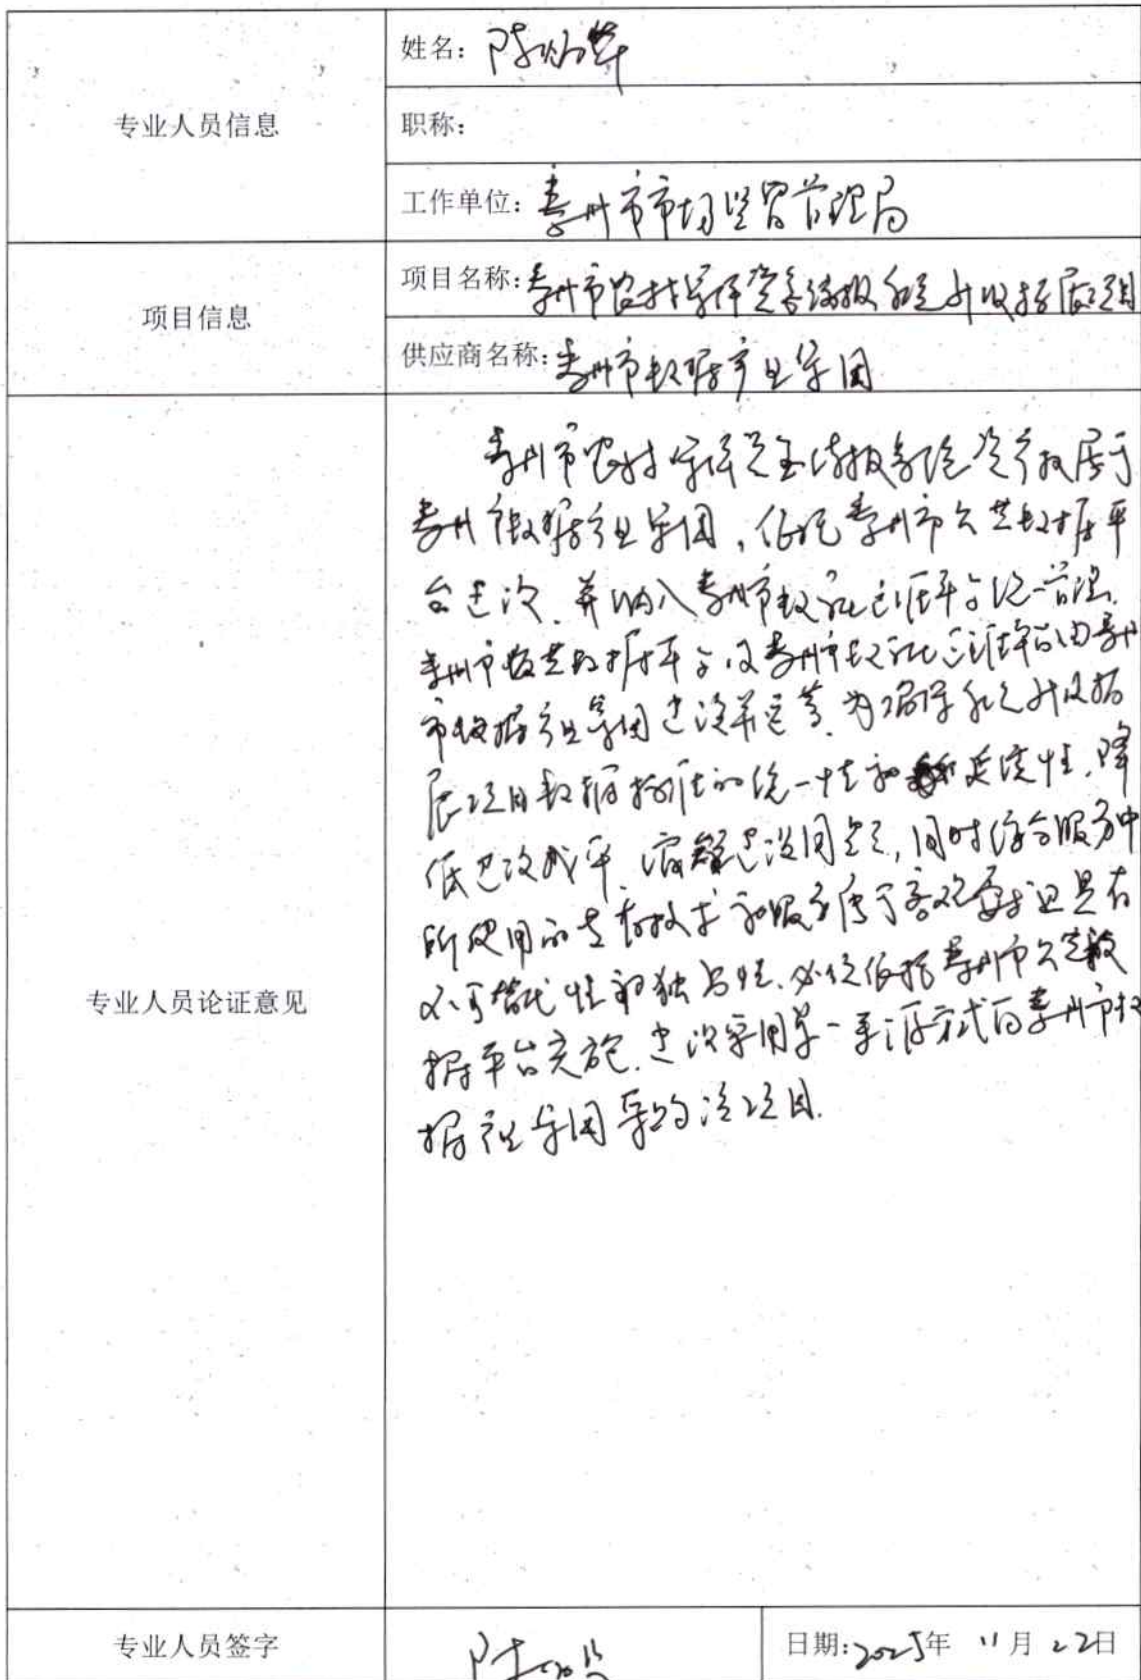 专业人员信息
姓名: 陈
职称:
工作单位: 泰州市市场监督管理局
项目信息
项目名称: 泰州市农村集体资金线报系统升级拓展项目
供应商名称: 泰州市数据产业集团
专业人员论证意见
泰州市农村集体资金线报系统产权属于
泰州市数据产业集团,依托泰州市公共数据平
台建设.并纳入泰州市数 平台统一管理.
泰州市公共数据平台及泰州市数 平台由泰州
市数据产业集团建设并运营.为确保系统升级拓
展项目数据标准的统一性和延续性.降
低建设成本.缩短建设周期,同时综合服务中
所使用的专有技术和服务属于客观要求且具有
不可替代性和独占性.必须依托泰州市公共数
据平台实施.建议采用单一来源方式向泰州市数
据产业集团采购该项目.
专业人员签字
陈
日期:2025年 11月 22日